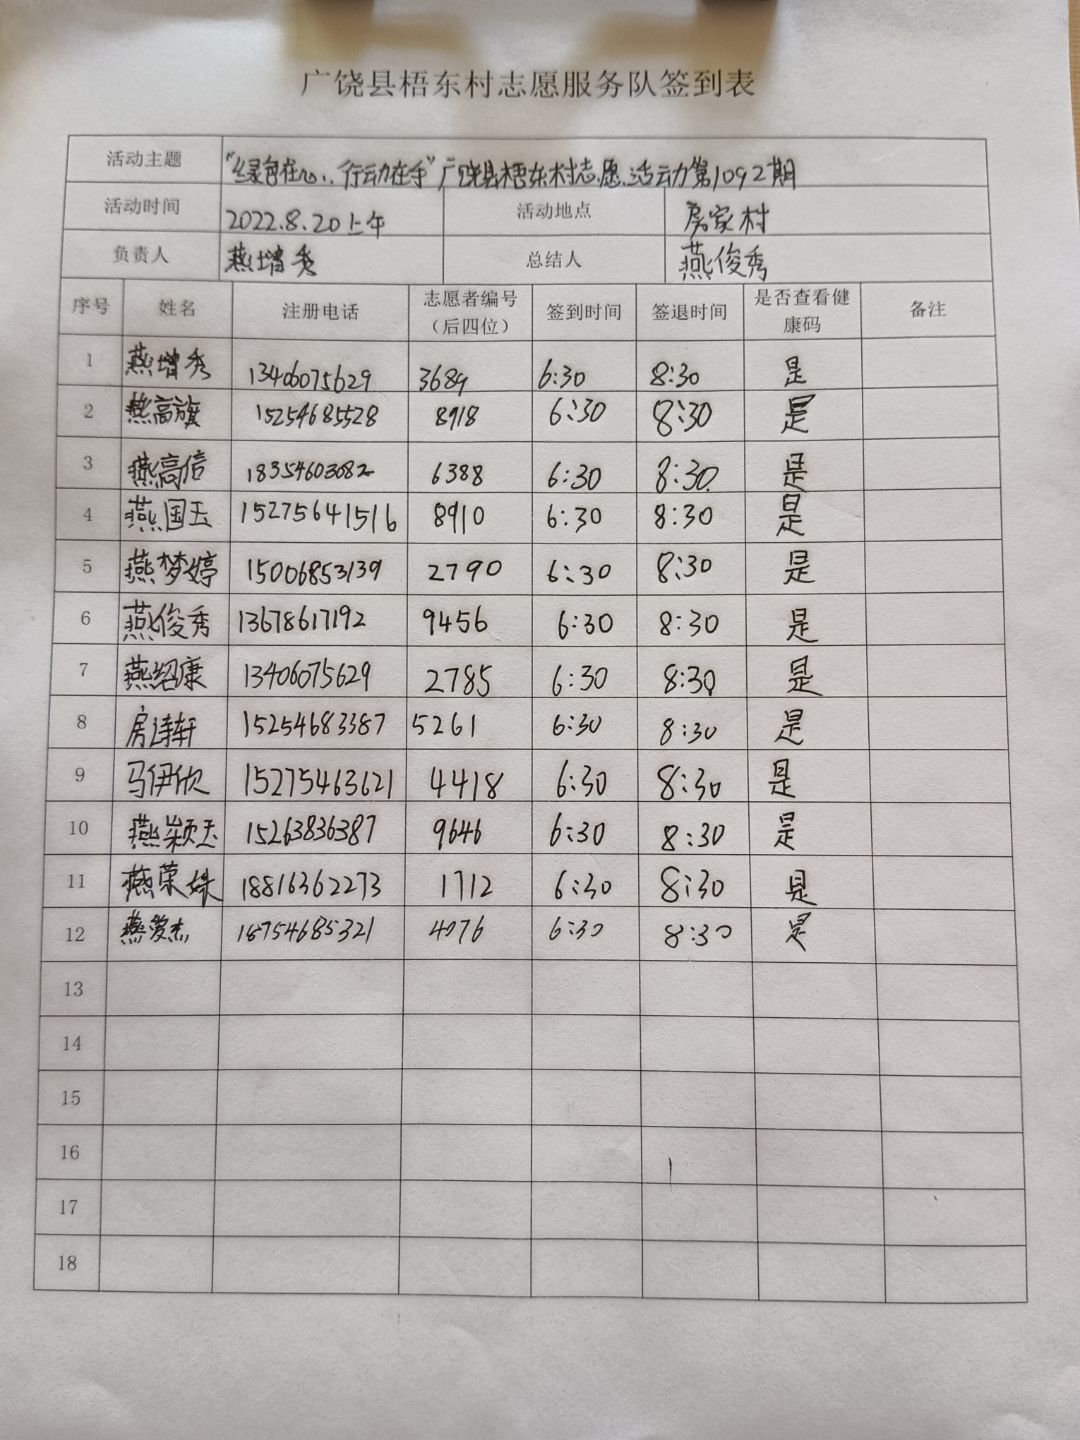 广饶县梧东村志愿服务队签到表
活动主题 "绿色在心、行动在手"广饶县梧东村志愿活动第1092期
活动时间 2022.8.20上午 活动地点 房家村
负责人 燕增秀 总结人 燕俊秀
序号 姓名 注册电话 志愿者编号（后四位） 签到时间 签退时间 是否查看健康码 备注
1 燕增秀 13406075629 3689 6:30 8:30 是
2 燕高旗 15254685528 8918 6:30 8:30 是
3 燕高信 18354603082 6388 6:30 8:30 是
4 燕国玉 15275641516 8910 6:30 8:30 是
5 燕梦婷 15006853139 2790 6:30 8:30 是
6 燕俊秀 13678617192 9456 6:30 8:30 是
7 燕绍康 13406075629 2785 6:30 8:30 是
8 房诗轩 15254683387 5261 6:30 8:30 是
9 马伊欣 15275463621 4418 6:30 8:30 是
10 燕颖玉 15263836387 9646 6:30 8:30 是
11 燕荣姝 18816362273 1712 6:30 8:30 是
12 燕爱杰 18754685321 4076 6:30 8:30 是
13
14
15
16
17
18